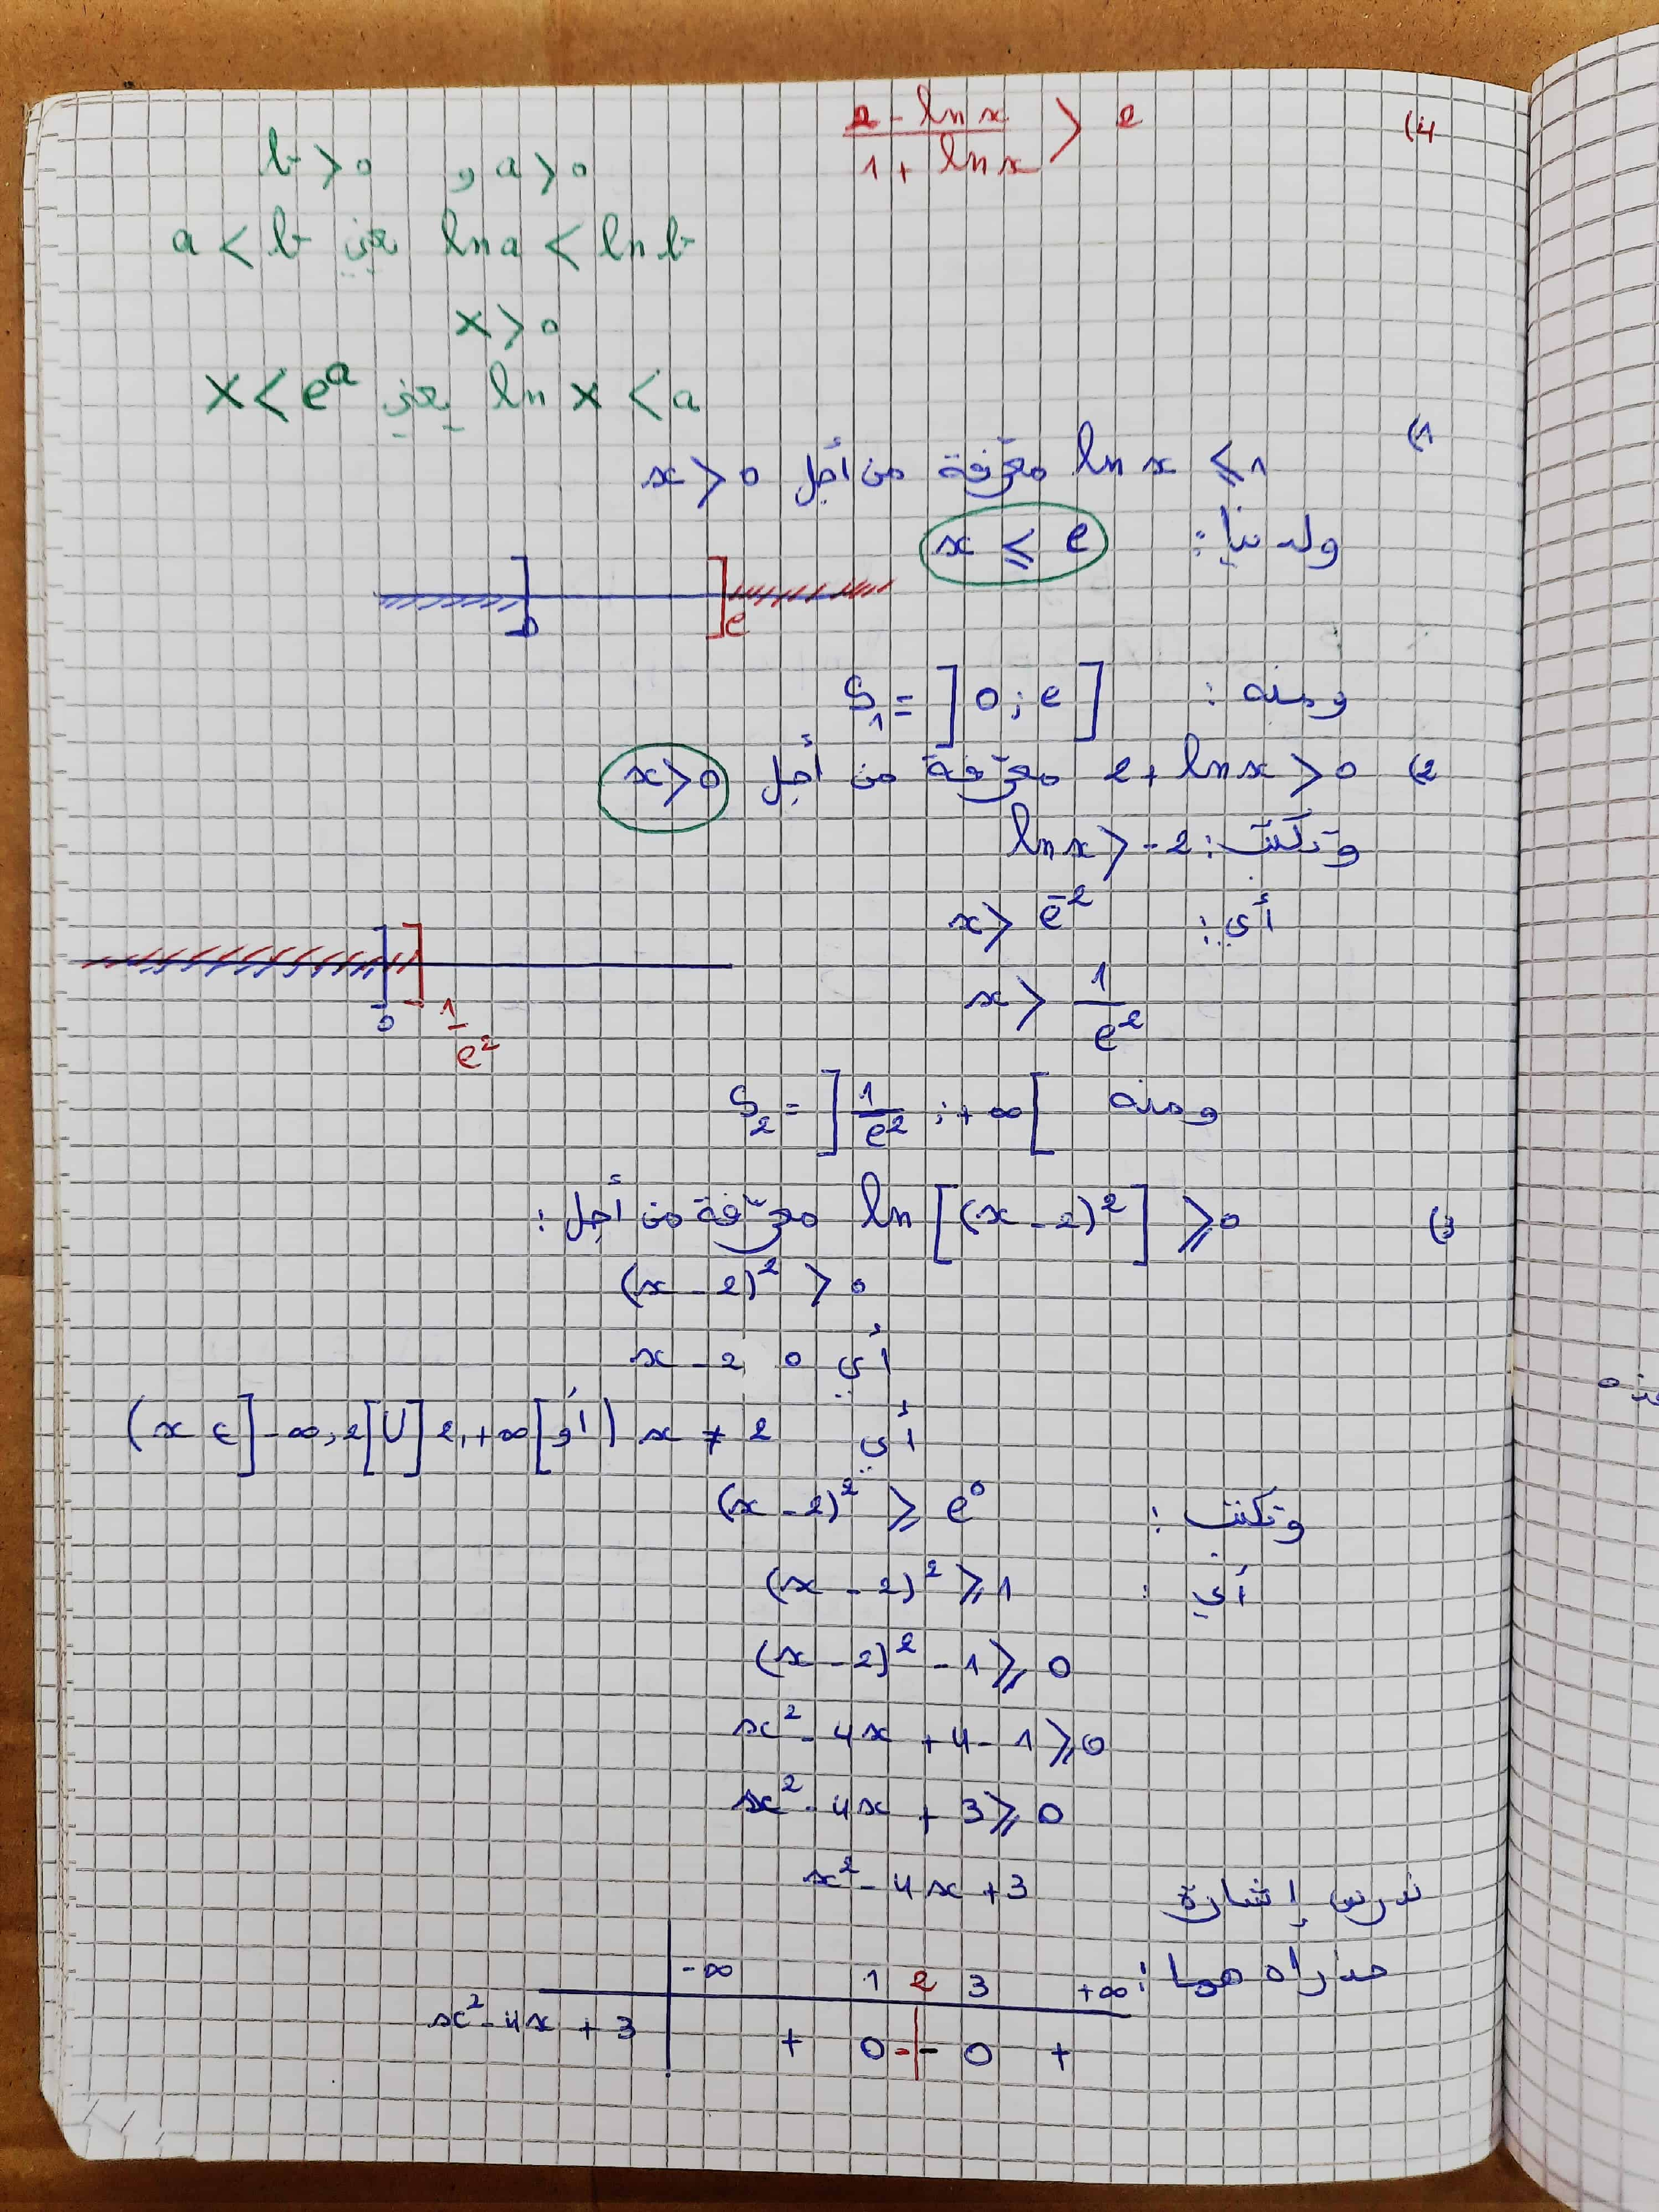 4) (2 - ln x)/(1 + ln x) > 2
a > 0 , b > 0
ln a < ln b يعني a < b
x > 0
ln x < a يعني x < e^a
1) ln x ≤ 1 معرّفة من أجل x > 0
ولدينا : x ≤ e
0 e
ومنه : S₁ = ]0 ; e]
2) 2 + ln x > 0 معرّفة من أجل x > 0
وتكتب : ln x > -2
أي : x > e⁻²
x > 1/e²
0 1/e²
ومنه S₂ = ]1/e² ; +∞[
3) ln[(x - 2)²] ≥ 0 معرّفة من أجل :
(x - 2)² > 0
أي x - 2 0
أي x ≠ 2 (أو x ∈ ]-∞, 2[ U ]2, +∞[)
وتكتب : (x - 2)² ≥ e⁰
أي : (x - 2)² ≥ 1
(x - 2)² - 1 ≥ 0
x² - 4x + 4 - 1 ≥ 0
x² - 4x + 3 ≥ 0
ندرس إشارة x² - 4x + 3
جذراه هما :
-∞ 1 2 3 +∞
x² - 4x + 3 + 0 - | - 0 +